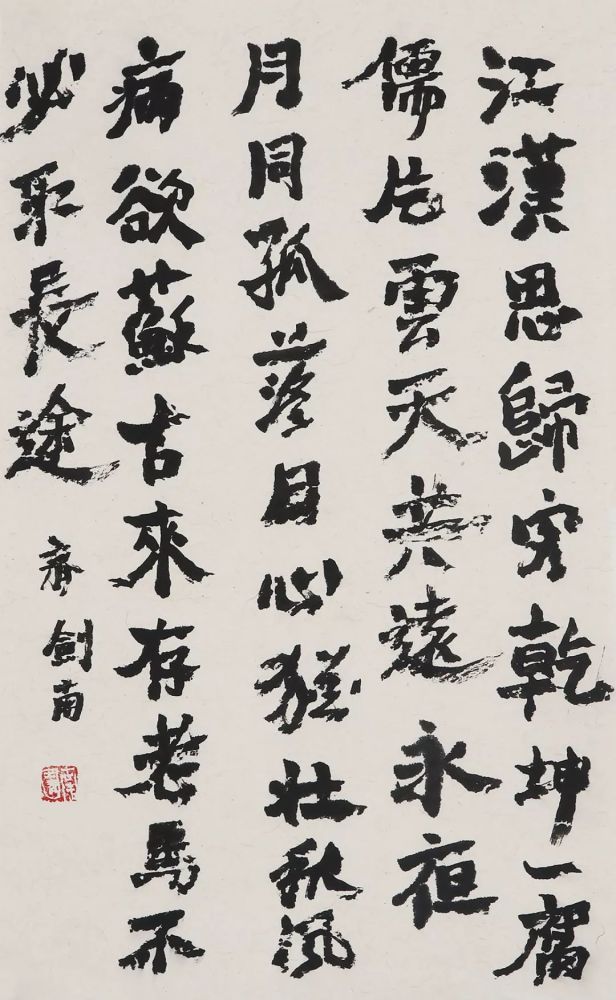 江漢思歸客乾坤一腐
儒片雲天共遠永夜
月同孤落日心猶壯秋風
病欲蘇古來存老馬不
必取長途 齊劍南